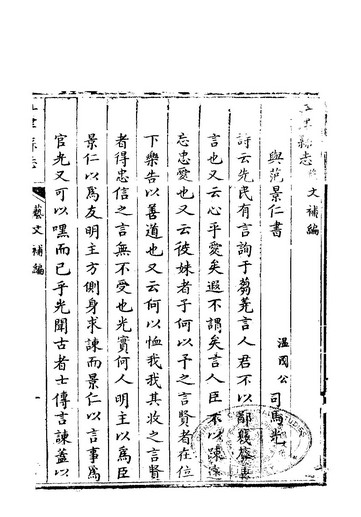 縣志 文補編
與范景仁書
溫國公司馬光
詩云先民有言詢于蒭蕘言人君不以鄙賤廢
言也又云心乎愛矣遐不謂矣言人臣不以疎遠
忘忠愛也又云彼姝者子何以予之言賢者在位
下樂告以善道也又云何以恤我我其收之言賢
者得忠信之言無不受也光實何人明主以為臣
景仁以為友明主方側身求諫而景仁以言事為
官光又可以嘿而已乎光聞古者士傳言諫蓋以
藝文補編